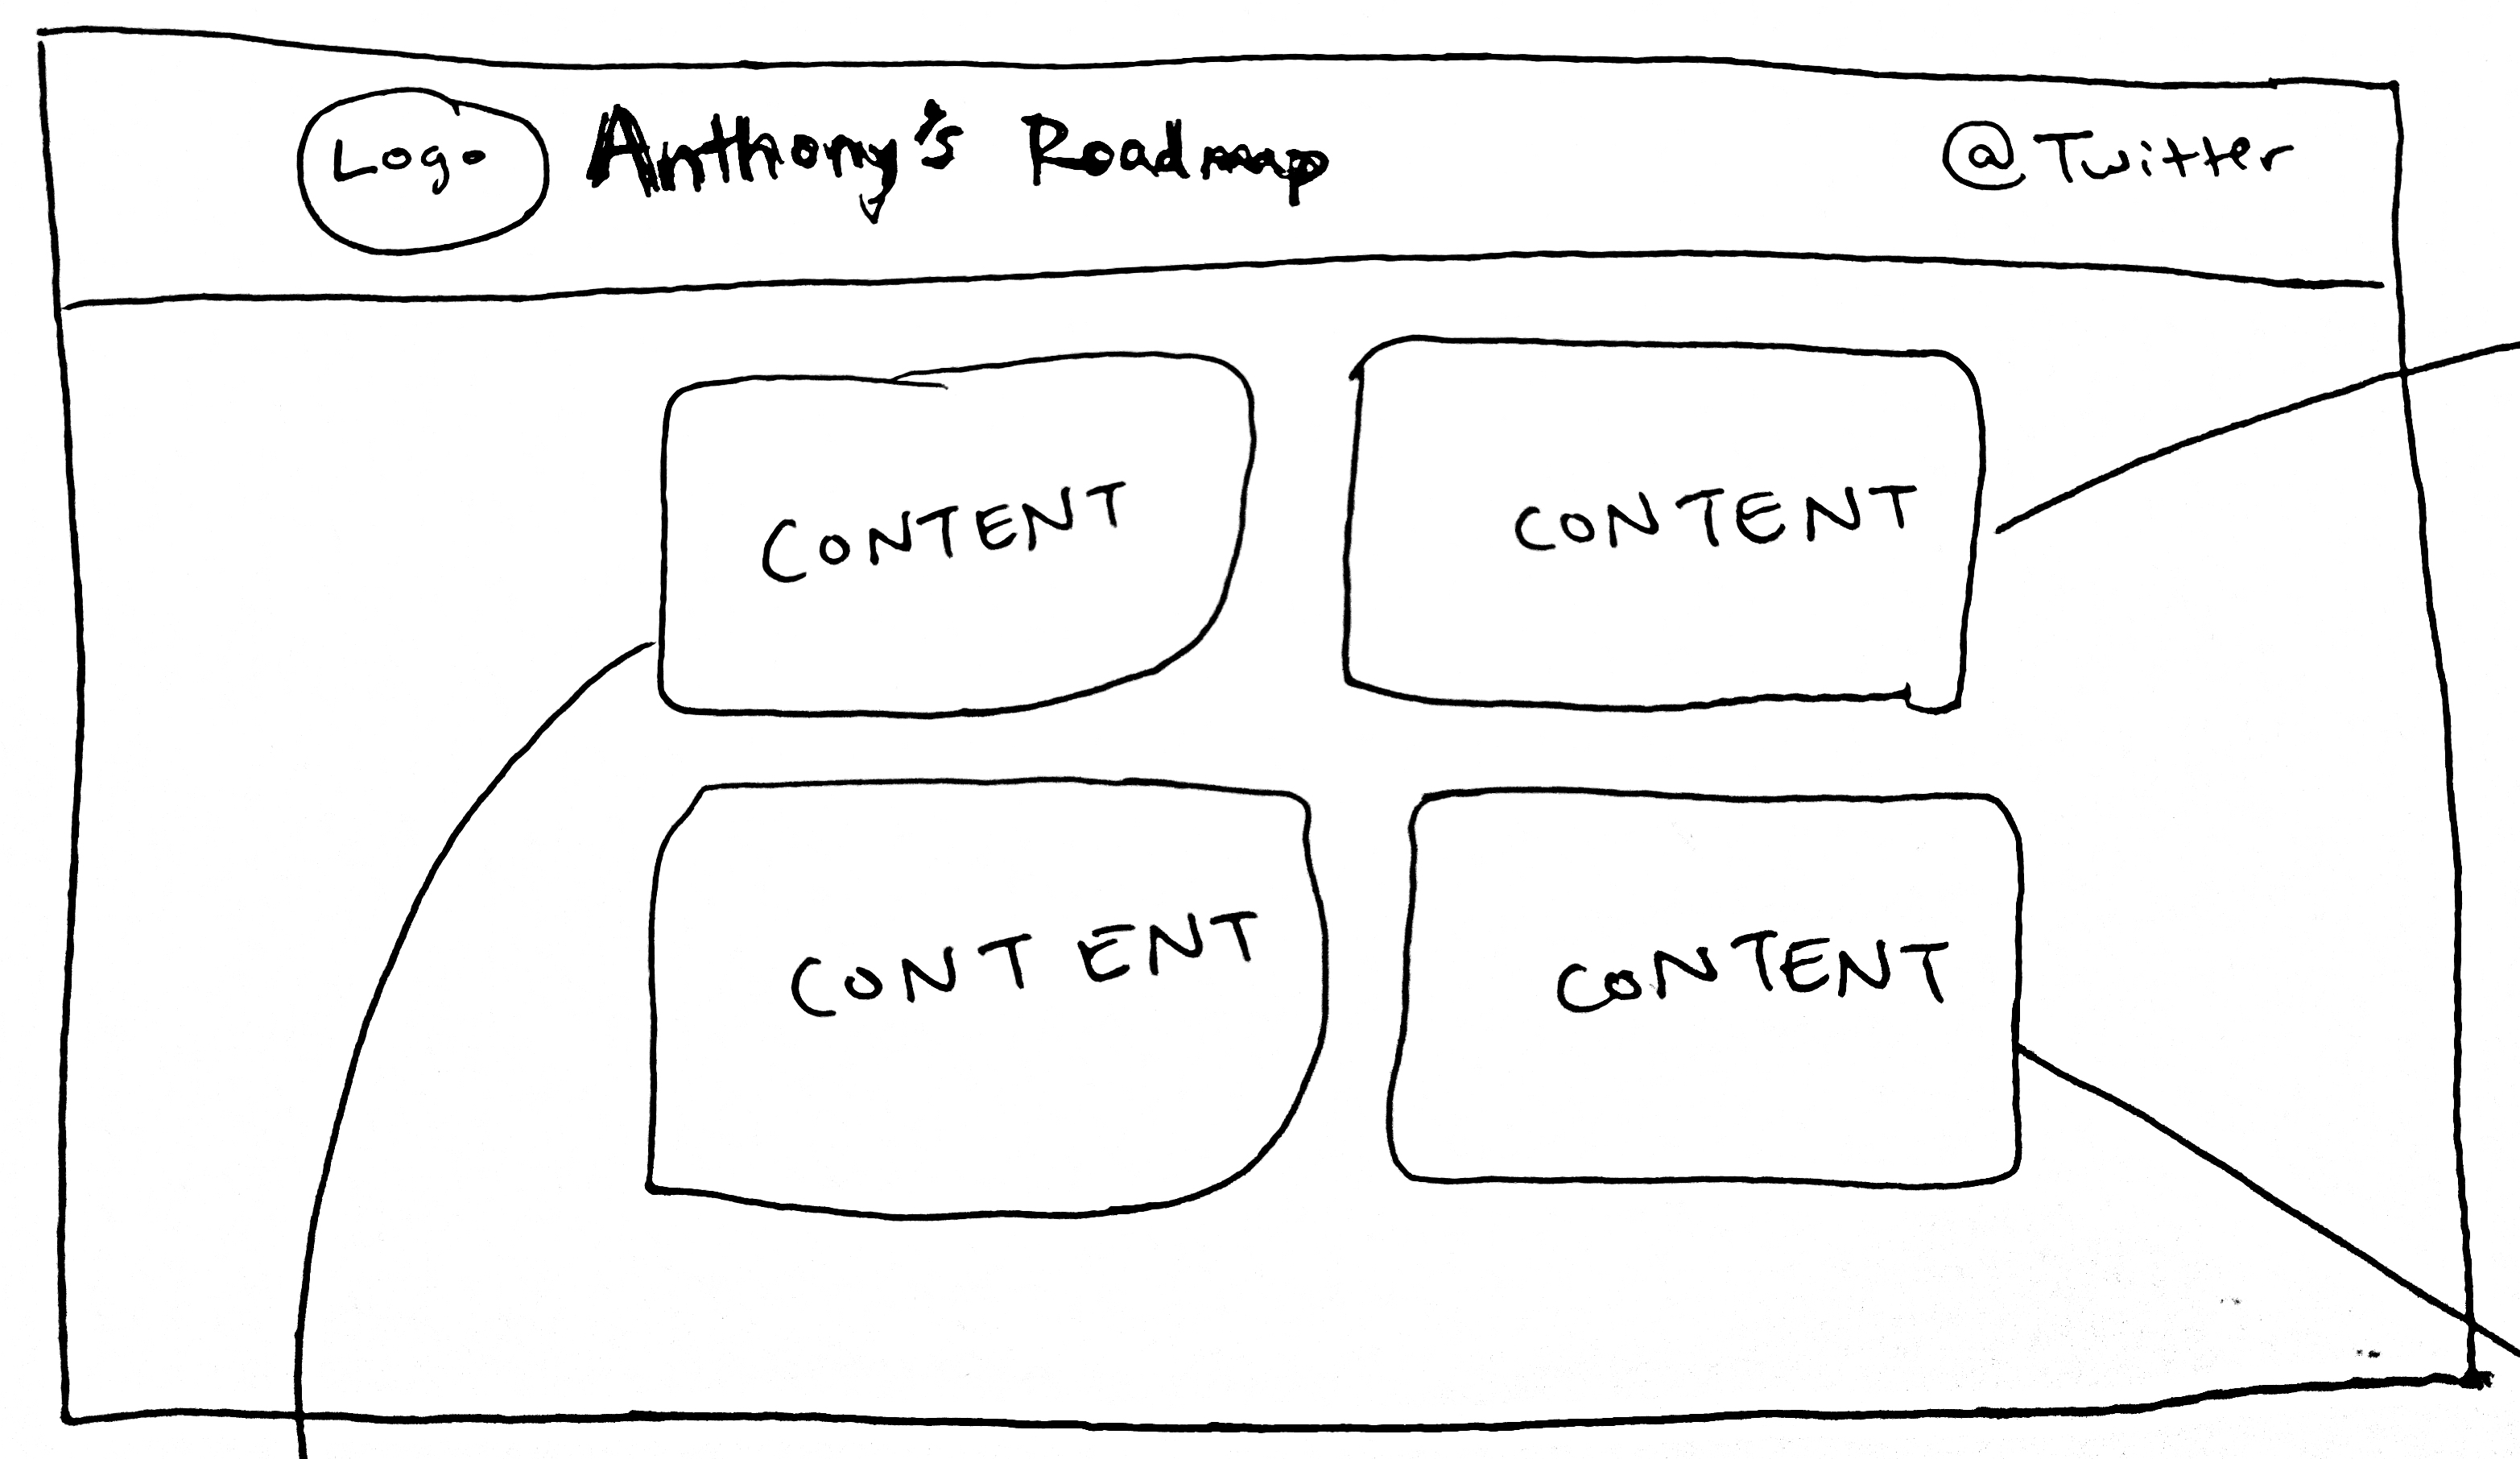 Logo Anthony's Roadmap @Twitter
CONTENT CONTENT
CONTENT CONTENT